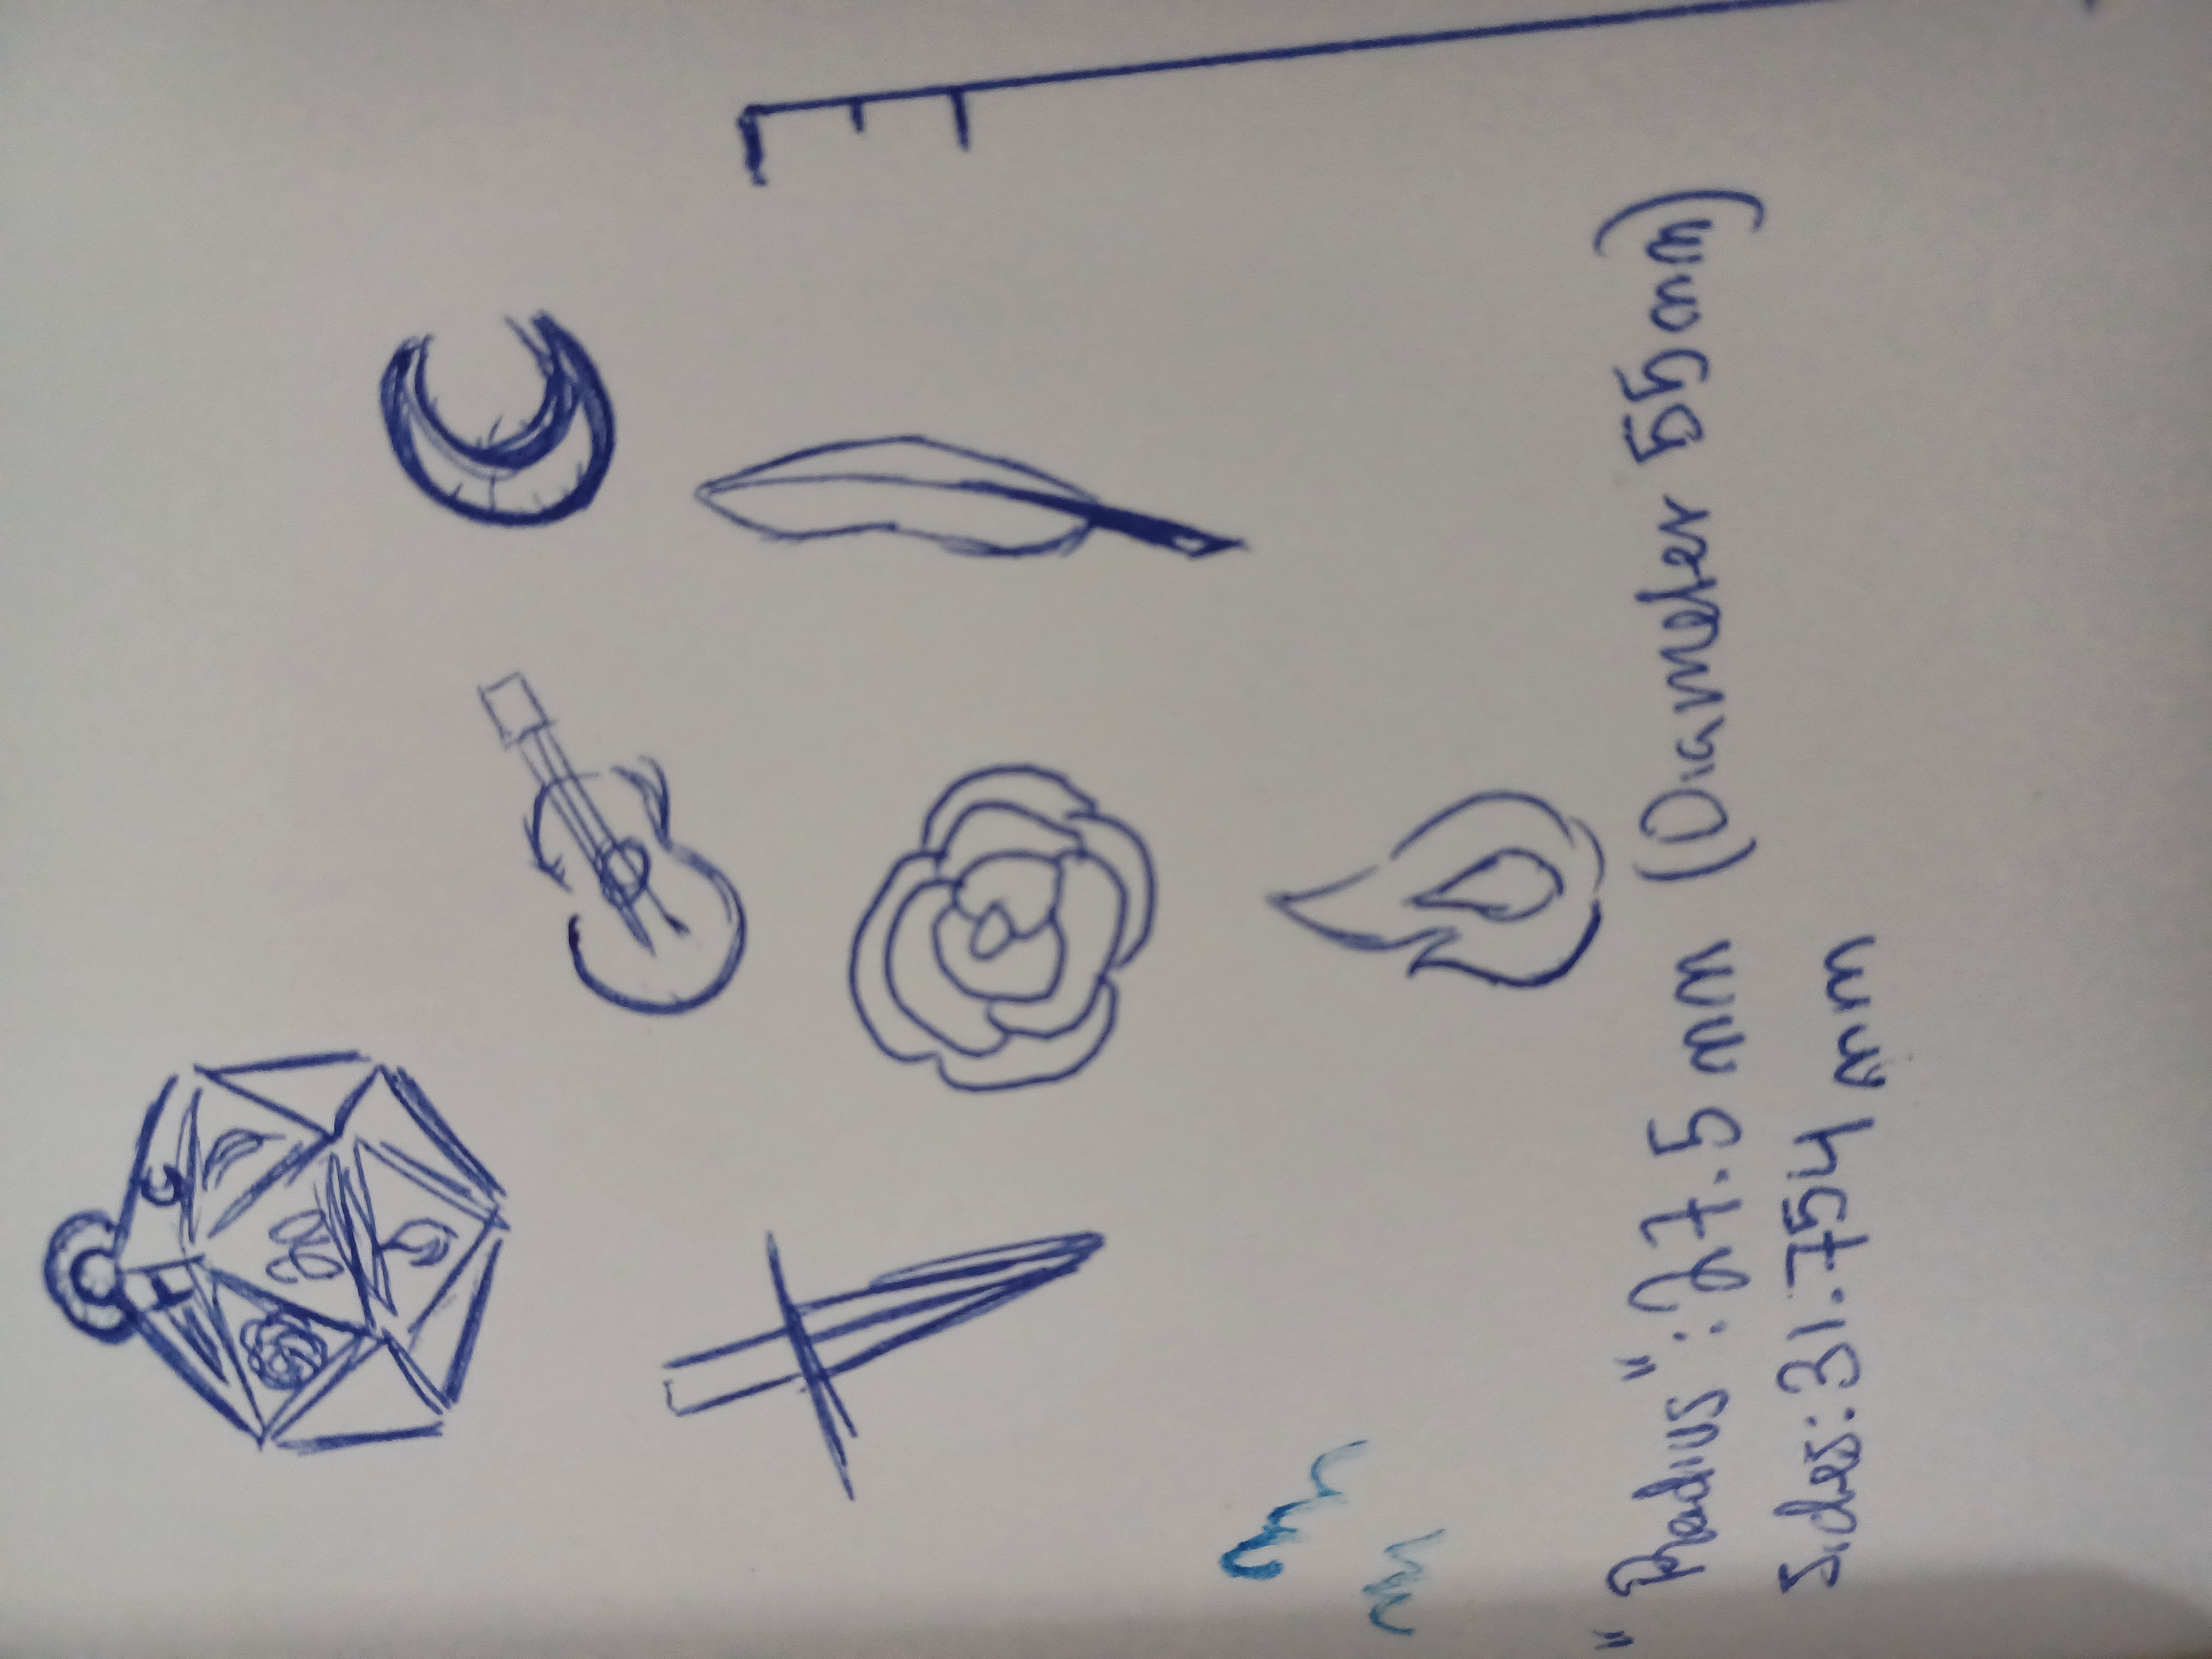 20
"Radius": 27.5 mm (Diameter 55 mm)
Sides: 31.754 mm